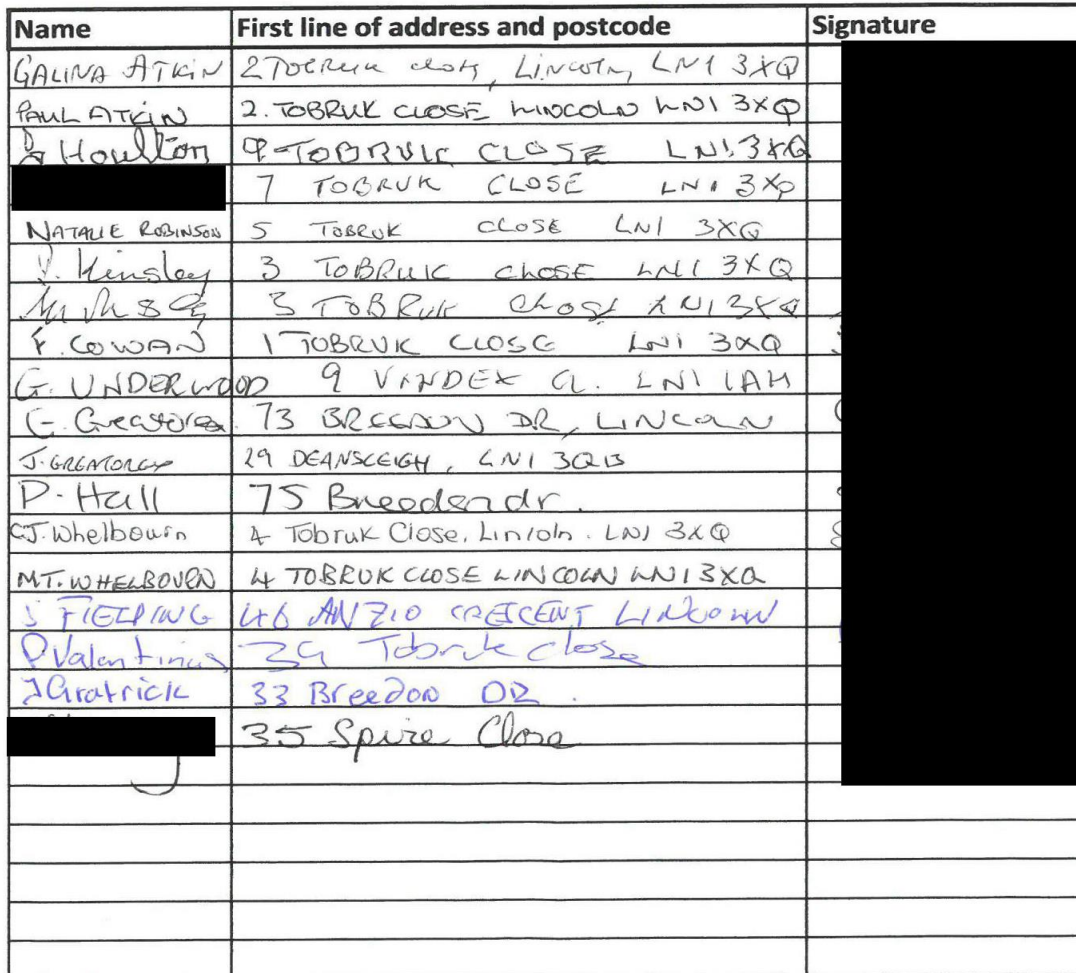 Name First line of address and postcode Signature
GALINA ATKIN 2 TOBRUK CLOSE, LINCOLN, LN1 3XQ
PAUL ATKIN 2. TOBRUK CLOSE LINCOLN LN1 3XQ
Houlton 9 TOBRUK CLOSE LN1 3XQ
7 TOBRUK CLOSE LN1 3XP
NATALIE ROBINSON 5 TOBRUK CLOSE LN1 3XQ
Kinsley 3 TOBRUK CLOSE LN1 3XQ
3 TOBRUK CLOSE LN1 3XQ
F. COWAN 1 TOBRUK CLOSE LN1 3XQ
G. UNDERWOOD 9 VANDEX CL. LN1 1AH
73 BREEDON DR, LINCOLN
J. GREATOREX 29 DEANSLEIGH, LN1 3QB
P. Hall 75 Breeden dr.
CJ. Whelbourn 4 Tobruk Close, Lincoln. LN1 3XQ
M.T. WHELBOURN 4 TOBRUK CLOSE LINCOLN LN1 3XQ
S FIELDING 46 ANZIO CRESCENT LINCOLN
P Valentinus 39 Tobruk close
J Gratrick 33 Breedon DR.
35 Spire Close